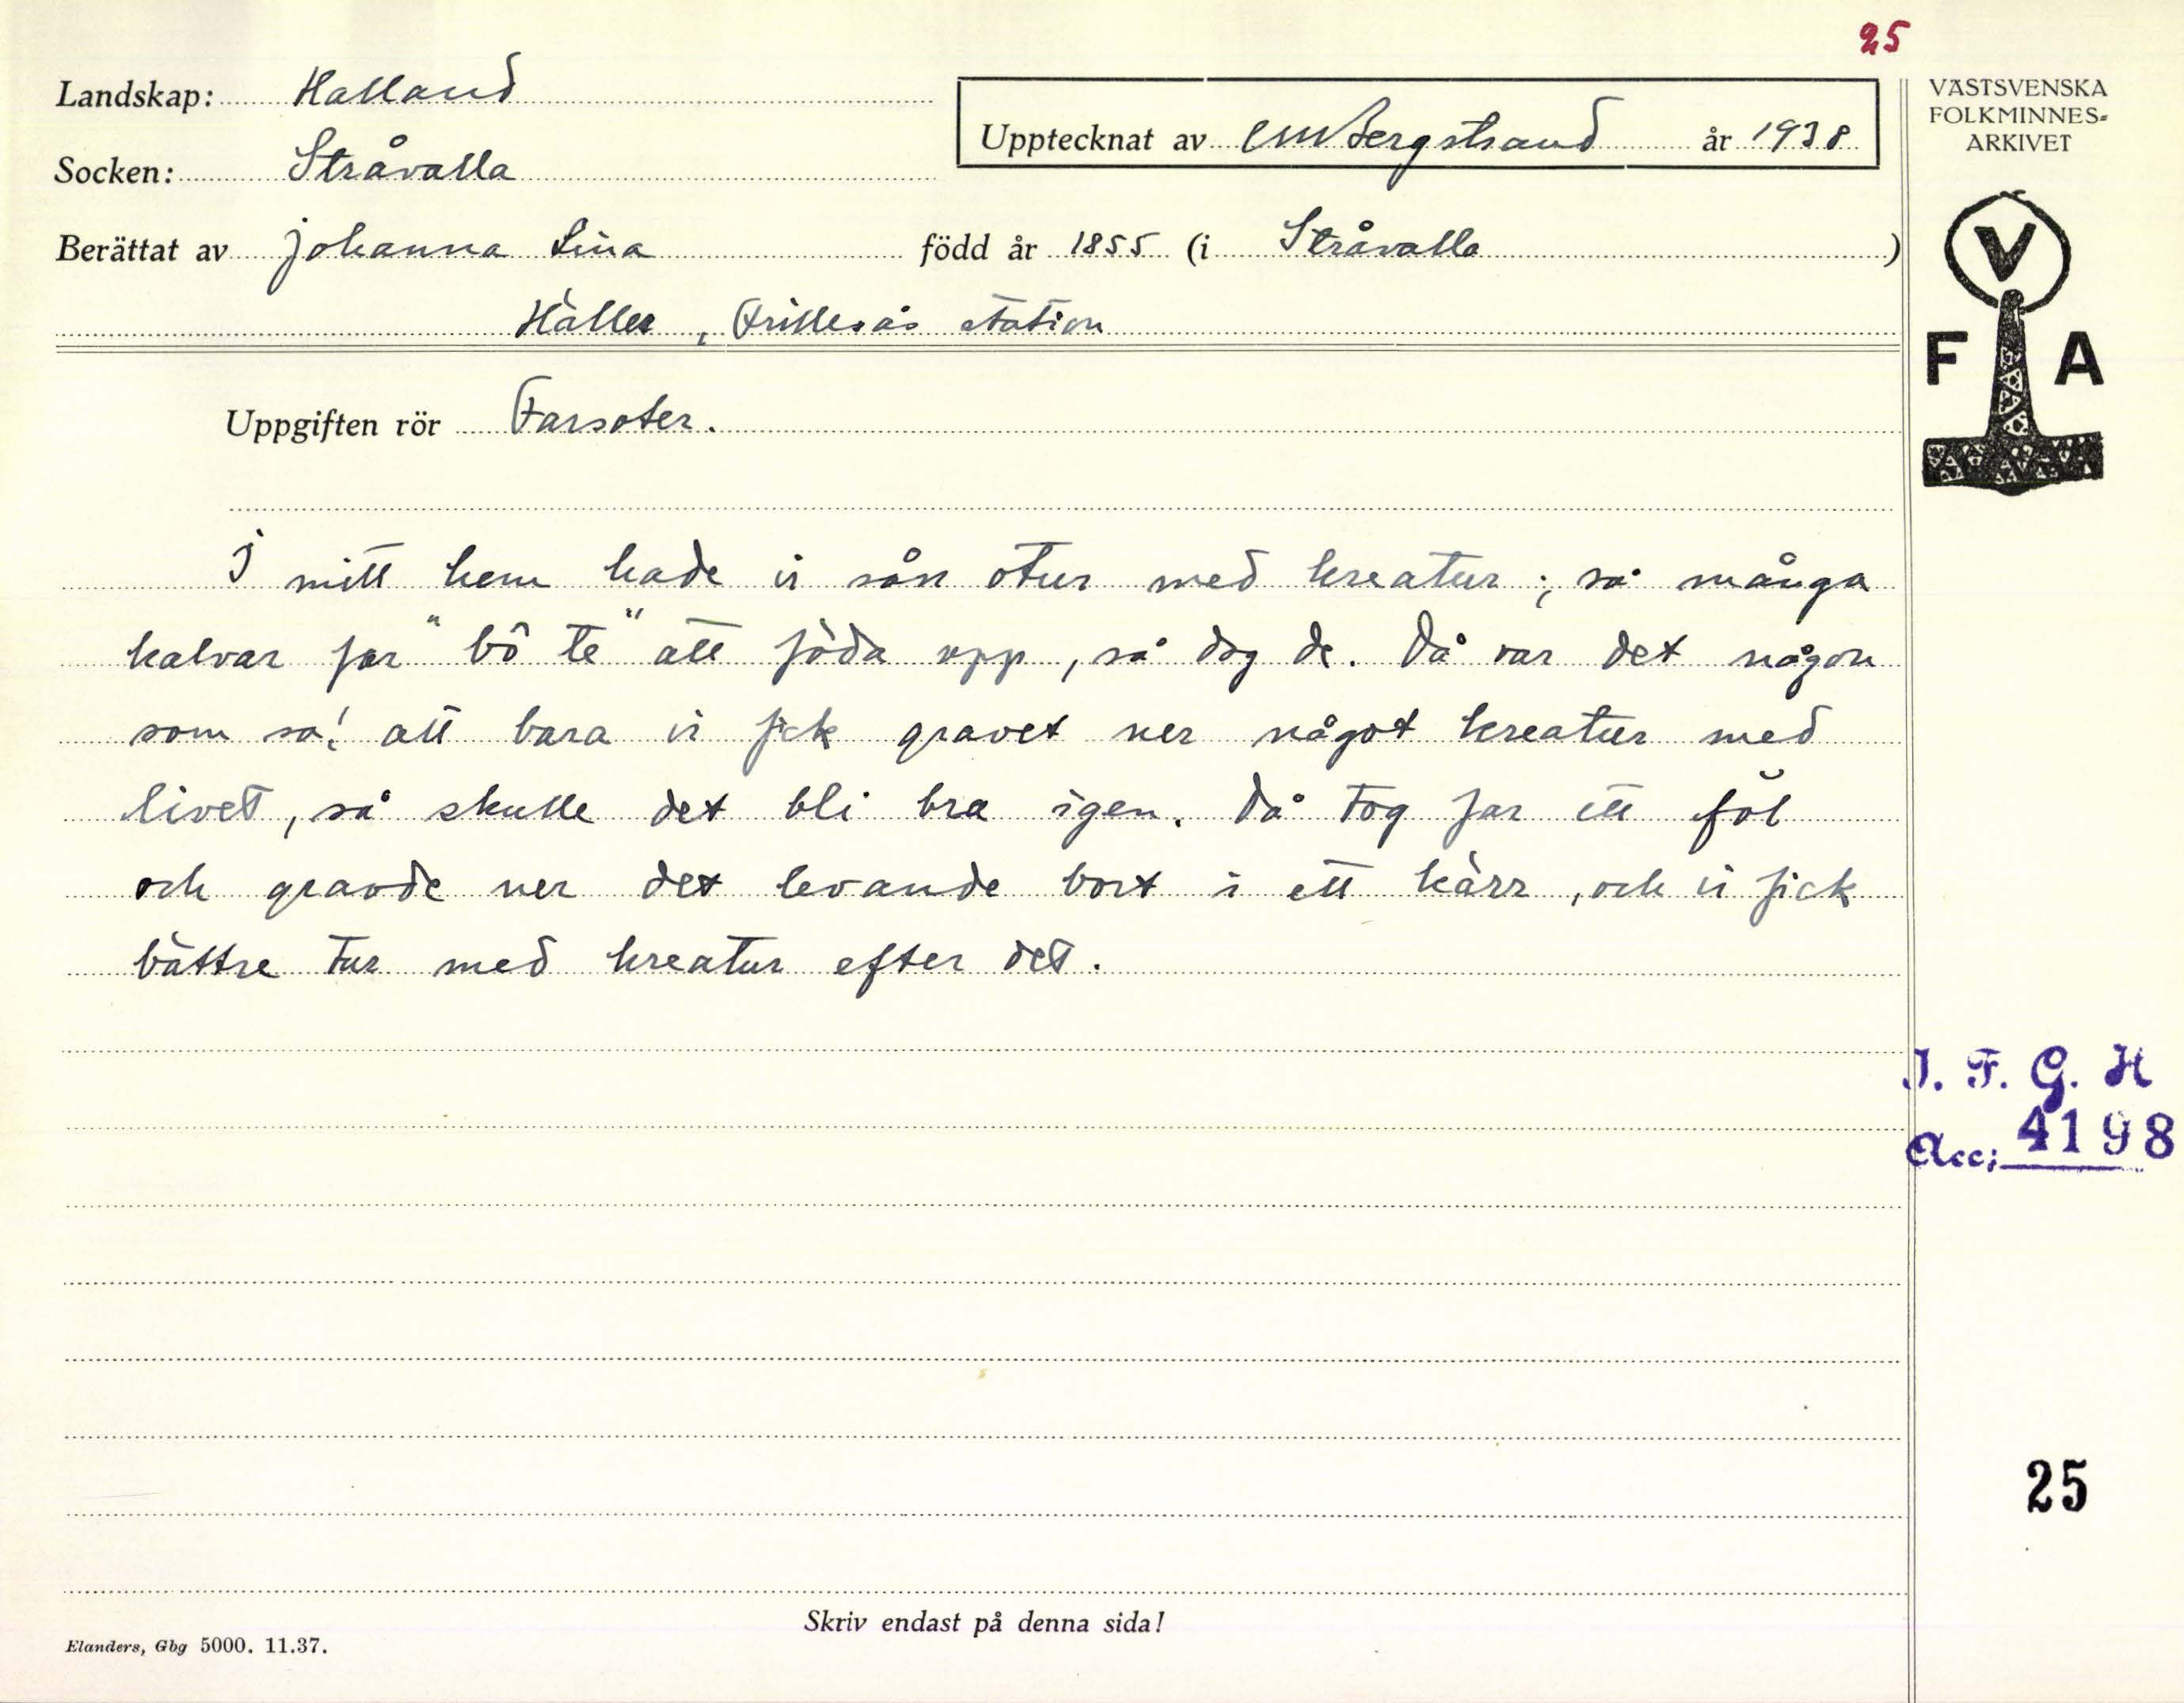 25
Landskap: Halland
Upptecknat av CMBergstrand år 1938
VÄSTSVENSKA
FOLKMINNES-
ARKIVET
Socken: Stråvalla
Berättat av Johanna Lina född år 1855 (i Stråvalla)
Hälles, Frillesås station
V
F A
Uppgiften rör Farsoter.
I mitt hem hade vi sån otur med kreatur; så många
kalvar far "bö te" att föda upp, så dog de. Då var det någon
som sa! att bara vi fick gravet ner något kreatur med
livet, så skulle det bli bra igen. Då tog far ett föl
och gravde ner det levande bort i ett kärr, och vi fick
bättre tur med kreatur efter det.
I. F. G. H
Acc; 4198
25
Skriv endast på denna sida!
Elanders, Gbg 5000. 11.37.